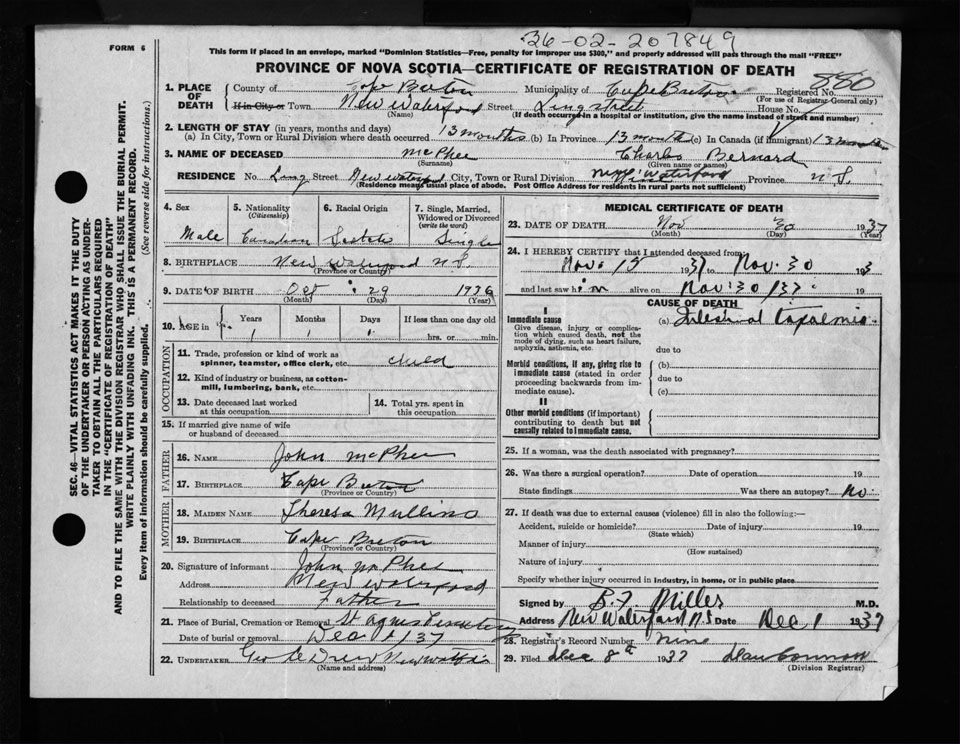 36-02-207849
FORM 6
This form if placed in an envelope, marked "Dominion Statistics—Free, penalty for improper use $300," and properly addressed will pass through the mail "FREE"
PROVINCE OF NOVA SCOTIA—CERTIFICATE OF REGISTRATION OF DEATH
880
SEC. 46—VITAL STATISTICS ACT MAKES IT THE DUTY
OF THE UNDERTAKER OR PERSON ACTING AS UNDER-
TAKER TO OBTAIN ALL THE PARTICULARS REQUIRED
IN THE "CERTIFICATE OF REGISTRATION OF DEATH"
AND TO FILE THE SAME WITH THE DIVISION REGISTRAR WHO SHALL ISSUE THE BURIAL PERMIT.
WRITE PLAINLY WITH UNFADING INK. THIS IS A PERMANENT RECORD.
Every item of information should be carefully supplied. (See reverse side for instructions.)
1. PLACE OF DEATH County of Cape Breton Municipality of Cape Breton Registered No.
(For use of Registrar-General only)
If in City or Town New Waterford Street Ling street House No.
(Name) (If death occurred in a hospital or institution, give the name instead of street and number)
2. LENGTH OF STAY (in years, months and days)
(a) In City, Town or Rural Division where death occurred 13 months (b) In Province 13 months (c) In Canada (if immigrant) 13 months
3. NAME OF DECEASED McPhee Charles Bernard
(Surname) (Given name or names)
RESIDENCE No. Ling Street New Waterford City, Town or Rural Division New Waterford Province N S.
(Residence means usual place of abode. Post Office Address for residents in rural parts not sufficient)
4. Sex 5. Nationality (Citizenship) 6. Racial Origin 7. Single, Married, Widowed or Divorced (write the word)
Male Canadian Single
8. BIRTHPLACE New Waterford N S.
(Province or Country)
9. DATE OF BIRTH Oct 29 1936
(Month) (Day) (Year)
10. AGE in Years Months Days If less than one day old
1 1 1 hrs. or min.
OCCUPATION
11. Trade, profession or kind of work as spinner, teamster, office clerk, etc. child
12. Kind of industry or business, as cotton-mill, lumbering, bank, etc.
13. Date deceased last worked at this occupation
14. Total yrs. spent in this occupation
15. If married give name of wife or husband of deceased
FATHER
16. NAME John McPhee
17. BIRTHPLACE Cape Breton
(Province or Country)
MOTHER
18. MAIDEN NAME Theresa Mullins
19. BIRTHPLACE Cape Breton
(Province or Country)
20. Signature of informant John McPhee
Address New Waterford
Relationship to deceased Father
21. Place of Burial, Cremation or Removal St Agnes Cemetery
Date of burial or removal Dec 1 /37
22. UNDERTAKER Geo Drew New Waterford
(Name and address)
MEDICAL CERTIFICATE OF DEATH
23. DATE OF DEATH Nov 30 1937
(Month) (Day) (Year)
24. I HEREBY CERTIFY that I attended deceased from
Nov. 15 1937 to Nov. 30 193
and last saw him alive on Nov 30/37 19
CAUSE OF DEATH
I
Immediate cause (a)
Give disease, injury or complication which caused death, not the mode of dying, such as heart failure, asphyxia, asthenia, etc.
due to
Morbid conditions, if any, giving rise to immediate cause (stated in order proceeding backwards from immediate cause). (b)
due to
(c)
II
Other morbid conditions (if important) contributing to death but not causally related to immediate cause.
25. If a woman, was the death associated with pregnancy?
26. Was there a surgical operation? Date of operation 19
State findings Was there an autopsy? No.
27. If death was due to external causes (violence) fill in also the following:—
Accident, suicide or homicide? Date of injury 19
(State which)
Manner of injury
(How sustained)
Nature of injury
Specify whether injury occurred in industry, in home, or in public place
Signed by B. F. Miller M.D.
Address New Waterford N.S Date Dec 1 1937
28. Registrar's Record Number nine
29. Filed Dec 8th 1937 Dan Connors
(Division Registrar)